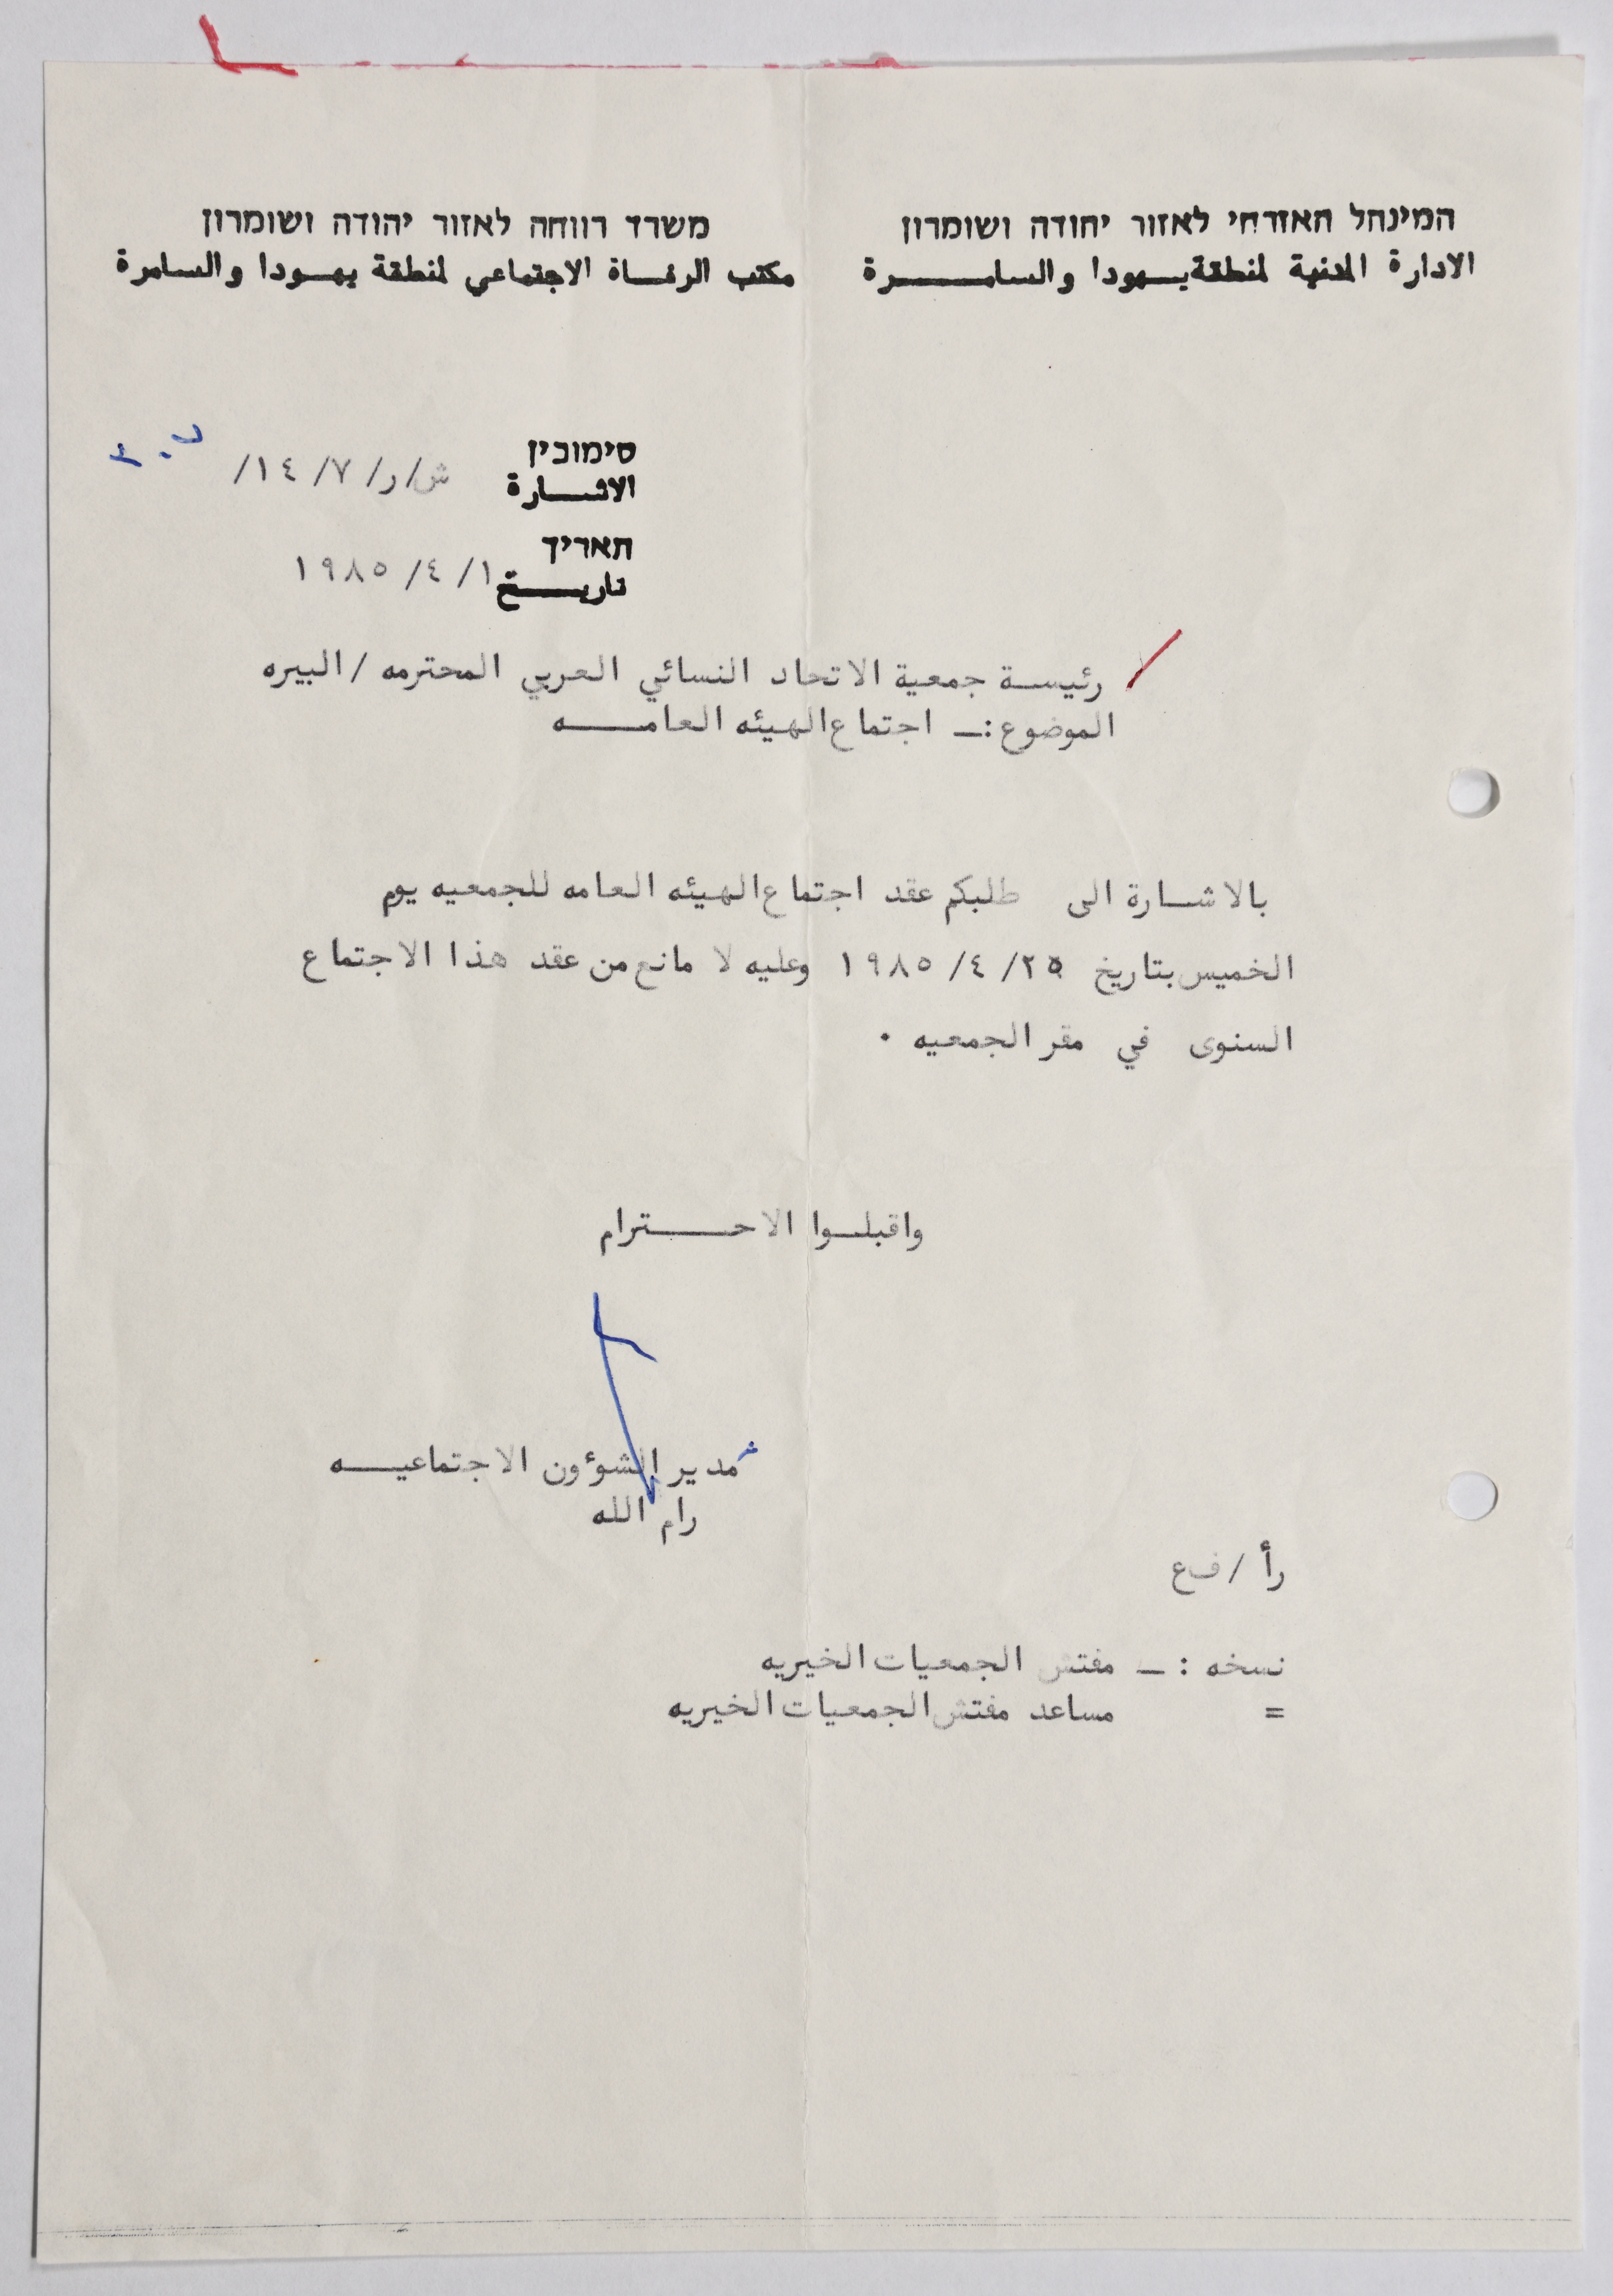 המינהל האזרחי לאזור יהודה ושומרון
الادارة المدنية لمنطقة يهودا والسامـــــرة
משרד רווחה לאזור יהודה ושומרון
مكتب الرفـاة الاجتماعي لمنطقة يهـودا والسـامرة
סימוכין
الاشـــارة ش/ر/ ٧/ ١٤/
תאריך
تاريــــخ ١/ ٤/ ١٩٨٥
رئيسـة جمعية الاتحاد النسائي العربي المحترمه / البيره
الموضوع :ـ اجتماع الهيئه العامــــه
بالاشـارة الى طلبكم عقد اجتماع الهيئه العامه للجمعيه يوم
الخميس بتاريخ ٢٥/ ٤/ ١٩٨٥ وعليه لا مانع من عقد هذا الاجتماع
السنوى في مقر الجمعيه ٠
واقبلـوا الاحـــــترام
مدير الشوٴون الاجتماعيـــه
رام الله
رأ / ف ع
نسخه : ـ مفتش الجمعيات الخيريه
= مساعد مفتش الجمعيات الخيريه